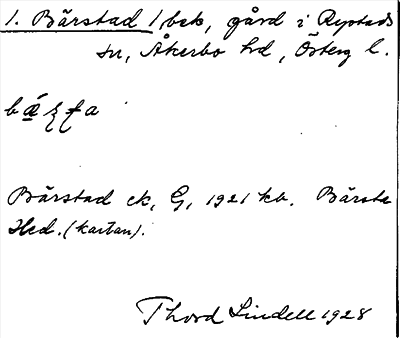 1. Bärstad 1/bek, gård i Rystads
sn, Åkerbo hd, Österg l.
Bärstad ek, G, 1921 kb. Bärsta
Hed. (kartan).
Thord Lindell 1928